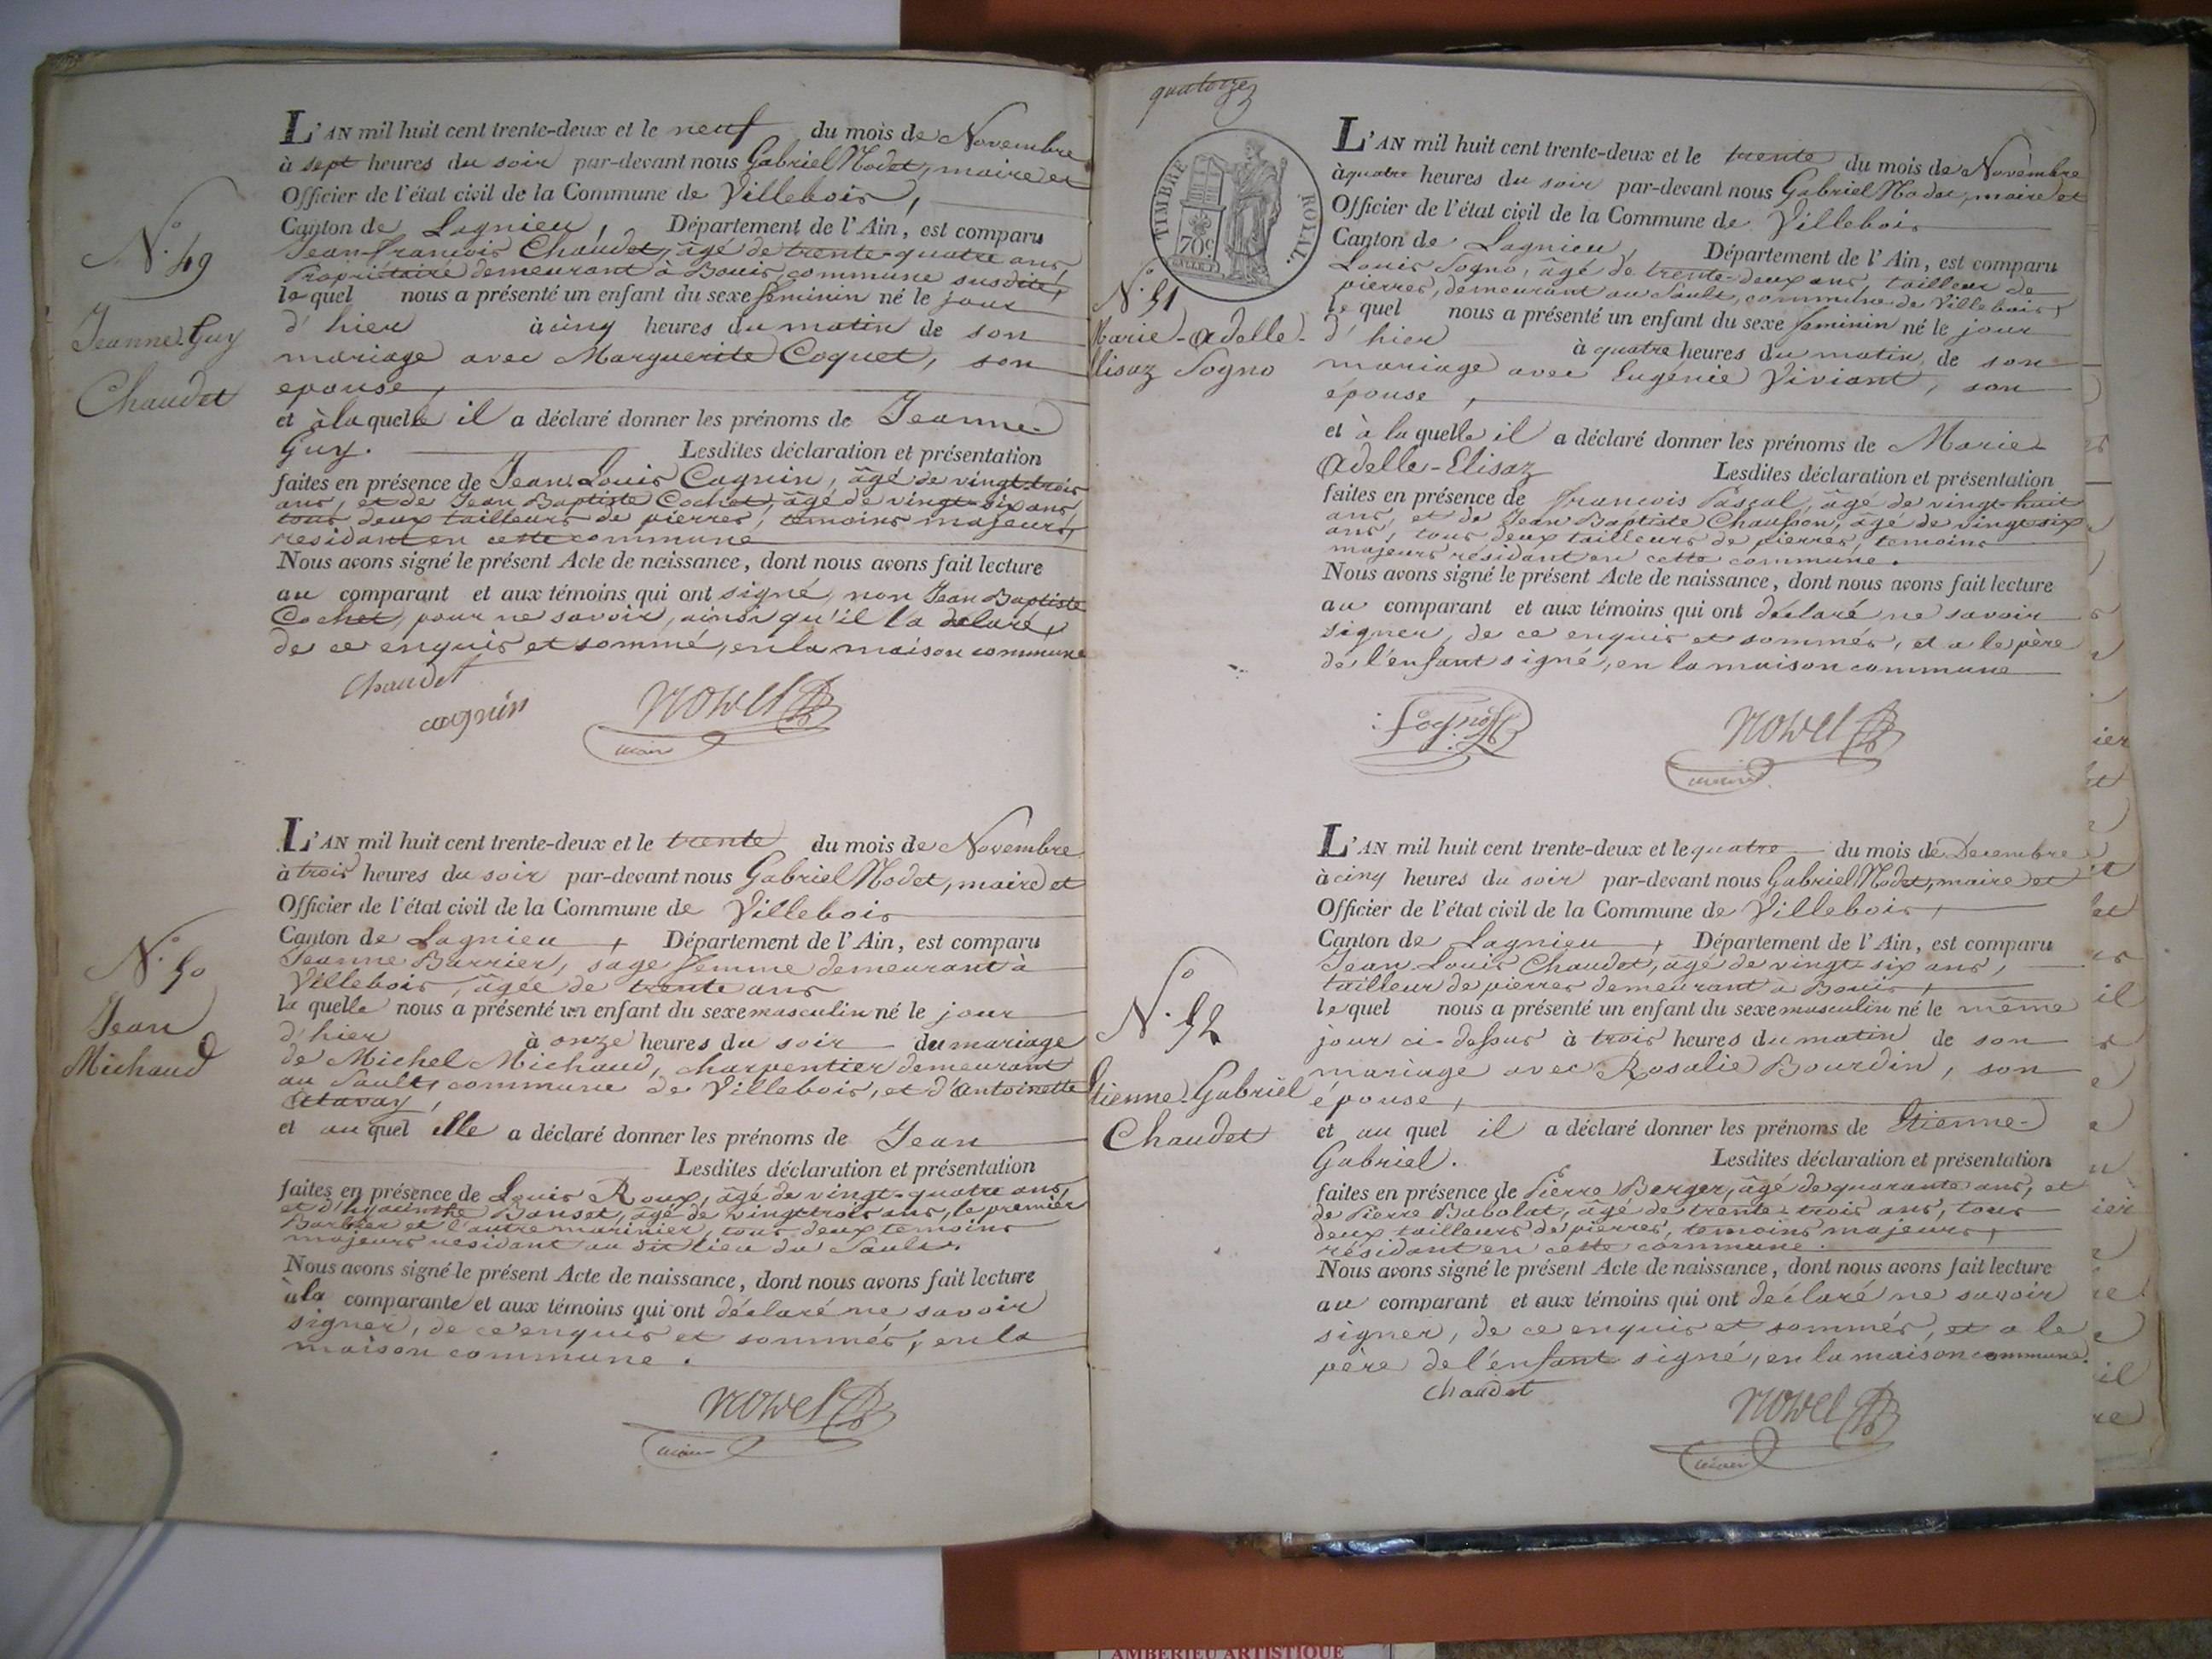 N.o 49
Jeanne-Guy
Chaudet
L'AN mil huit cent trente-deux et le neuf du mois de Novembre
à sept heures du soir par-devant nous Gabriel Nodet, maire et
Officier de l'état civil de la Commune de Villebois,
Canton de Lagnieu, Département de l'Ain, est comparu
Jean-françois Chaudet, âgé de trente-quatre ans,
Propriétaire demeurant à Bouis, commune susdite,
lequel nous a présenté un enfant du sexe féminin né le jour
d'hier à cinq heures du matin de son
mariage avec Marguerite Coquet, son
epouse,
et à laquelle il a déclaré donner les prénoms de Jeanne-
Guy. Lesdites déclaration et présentation
faites en présence de Jean Louis Cagnin, âgé de vingt-trois
ans, et de Jean Baptiste Cochet, âgé de vingt-six ans,
tous deux tailleurs de pierres, témoins majeurs,
résidant en cette commune
Nous avons signé le présent Acte de naissance, dont nous avons fait lecture
au comparant et aux témoins qui ont signé, non Jean Baptiste
Cochet, pour ne savoir, ainsi qu'il l'a déclaré,
de ce enquis et sommé, en la maison commune
Chaudet
cagnin
maire
N.o 50
Jean
Michaud
L'AN mil huit cent trente-deux et le trente du mois de Novembre
à trois heures du soir par-devant nous Gabriel Nodet, maire et
Officier de l'état civil de la Commune de Villebois
Canton de Lagnieu, Département de l'Ain, est comparu
Jeanne Barrier, sage femme demeurant à
Villebois, âgée de trente ans
la quelle nous a présenté un enfant du sexe masculin né le jour
d'hier à onze heures du soir du mariage
de Michel Michaud, charpentier demeurant
au Sault, commune de Villebois, et d'Antoinette
et au quel elle a déclaré donner les prénoms de Jean
Lesdites déclaration et présentation
faites en présence de Louis Roux, âgé de vingt-quatre ans,
et d'hyacinthe Banset, âgé de vingt trois ans, le premier
Barbier et l'autre marinier, tous deux témoins
majeurs résidant au dit lieu du Sault.
Nous avons signé le présent Acte de naissance, dont nous avons fait lecture
à la comparante et aux témoins qui ont déclaré ne savoir
signer, de ce enquis et sommés, en la
maison commune.
maire
quatorze
TIMBRE ROYAL.
70c
N.o 51
Marie-Adelle-
Elisaz Sogno
L'AN mil huit cent trente-deux et le trente du mois de Novembre
à quatre heures du soir par-devant nous Gabriel Nodet, maire et
Officier de l'état civil de la Commune de Villebois
Canton de Lagnieu, Département de l'Ain, est comparu
Louis Sogno, âgé de trente-deux ans, tailleur de
pierres, demeurant au Sault, commune de Villebois,
lequel nous a présenté un enfant du sexe féminin né le jour
d'hier à quatre heures du matin de son
mariage avec Eugénie Viviant, son
épouse,
et à la quelle il a déclaré donner les prénoms de Marie-
Adelle-Elisaz Lesdites déclaration et présentation
faites en présence de françois Pascal, âgé de vingt-huit
ans, et de Jean Baptiste Chausson, âgé de vingt six
ans, tous deux tailleurs de pierres, témoins
majeurs résidant en cette commune.
Nous avons signé le présent Acte de naissance, dont nous avons fait lecture
au comparant et aux témoins qui ont déclaré ne savoir
signer, de ce enquis et sommés, et a le père
de l'enfant signé, en la maison commune
Sogno
maire
N.o 52
Etienne-Gabriel
Chaudet
L'AN mil huit cent trente-deux et le quatre du mois de Decembre
à cinq heures du soir par-devant nous Gabriel Nodet, maire et
Officier de l'état civil de la Commune de Villebois,
Canton de Lagnieu, Département de l'Ain, est comparu
Jean Louis Chaudet, âgé de vingt-six ans,
tailleur de pierres demeurant à Bouis,
lequel nous a présenté un enfant du sexe masculin né le même
jour ci-dessus à trois heures du matin de son
mariage avec Rosalie Bourdin, son
épouse,
et au quel il a déclaré donner les prénoms de Etienne-
Gabriel. Lesdites déclaration et présentation
faites en présence de Pierre Berger, âgé de quarante ans, et
de Pierre Babolat, âgé de trente-trois ans, tous
deux tailleurs de pierres, témoins majeurs,
résidant en cette commune.
Nous avons signé le présent Acte de naissance, dont nous avons fait lecture
au comparant et aux témoins qui ont déclaré ne savoir
signer, de ce enquis et sommés, et a le
père de l'enfant signé, en la maison commune.
chaudet
maire
AMBERIEU ARTISTIQUE